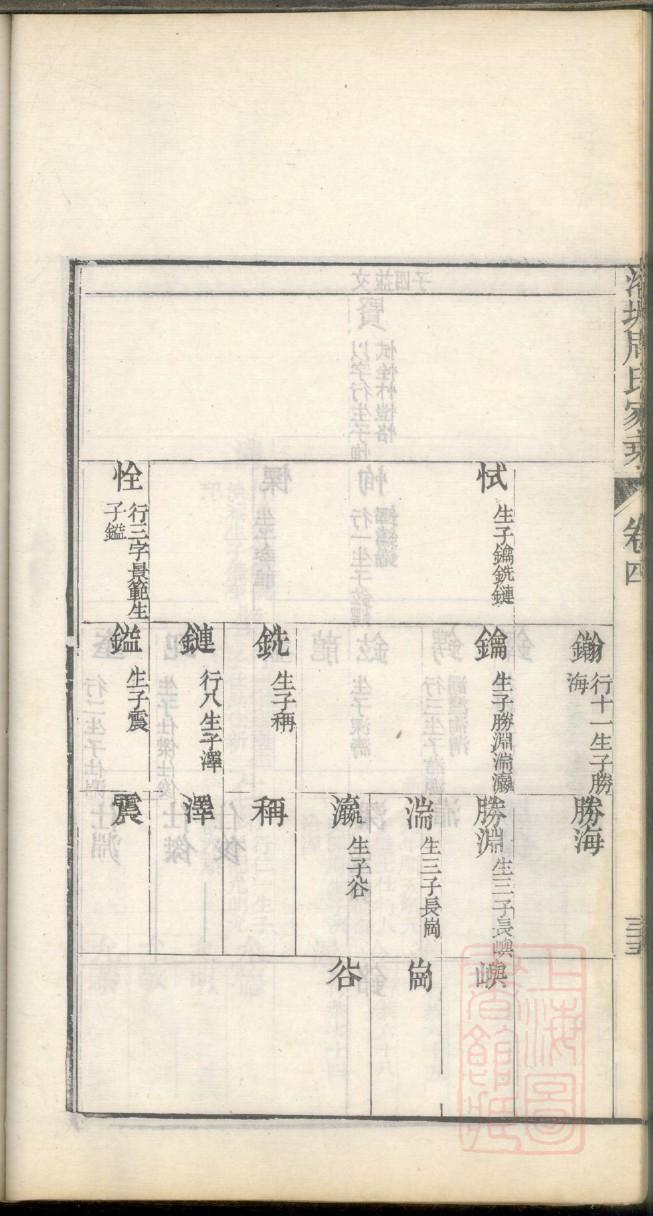 周氏家乘
卷四
鏾
行十一生子勝
海
勝海
恜
生子鑰銑鏈
鑰
生子勝淵湍瀛
勝淵
生三子長嶼
嶼
湍
生三子長崗
崗
瀛
生子峪
峪
銑
生子稱
稱
鏈
行八生子澤
澤
恮
行三字景範生
子鎰
鎰
生子震
震
上海圖書館藏